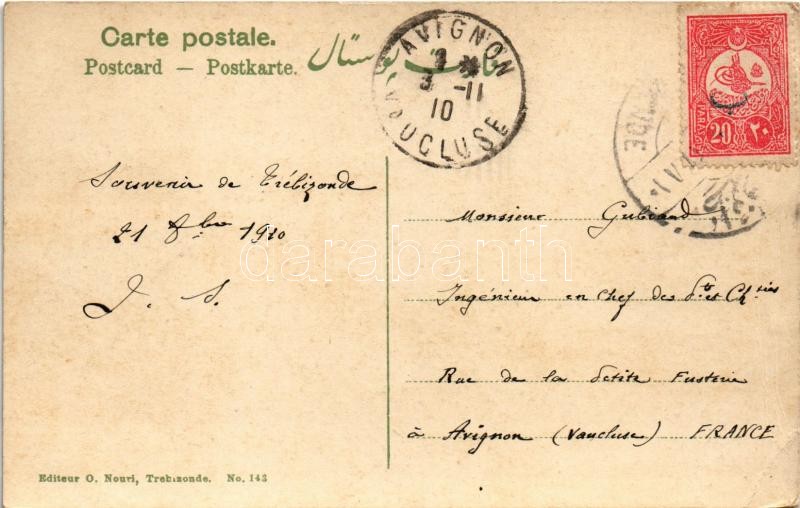 Carte postale.
Postcard — Postkarte.
AVIGNON
3 -11
10
VAUCLUSE
20
٢٠
PARAS
Souvenir de Trébizonde
21 8bre 1910
J. S.
Monsieur
Ingénieur en Chef des Pts et Ch.sées
Rue de la Petite Fusterie
à Avignon (Vaucluse) FRANCE
darabanth
Editeur O. Nouri, Trebizonde. No. 143